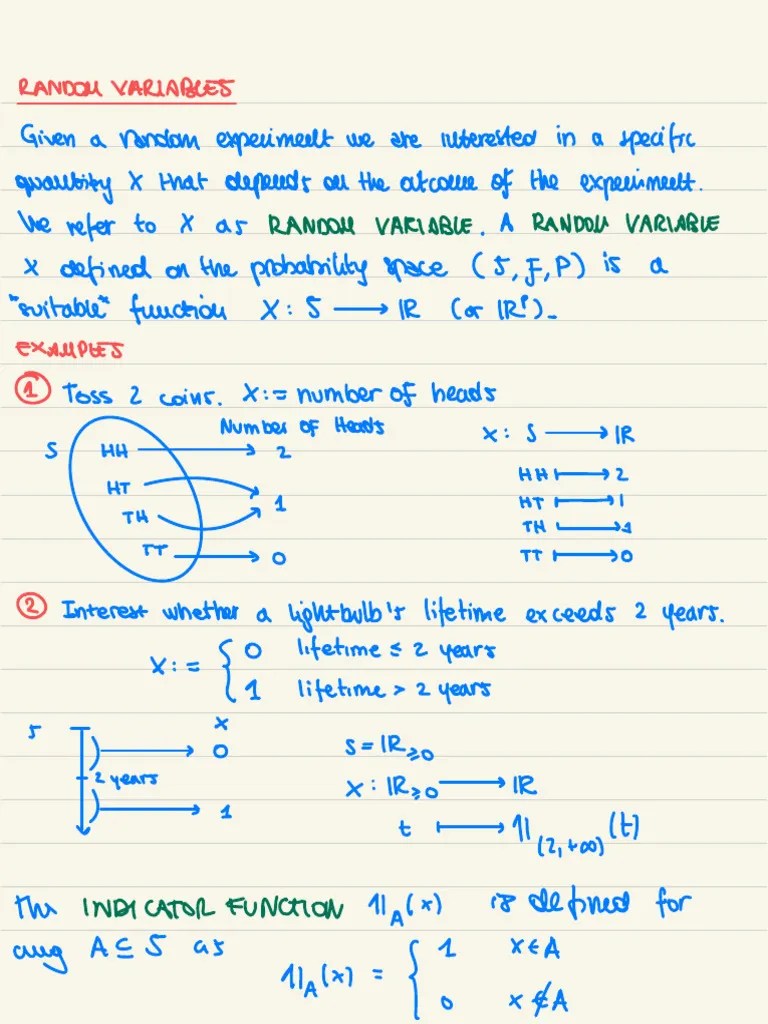 RANDOM VARIABLES
Given a random experiment we are interested in a specific
quantity X that depends on the outcome of the experiment.
We refer to X as RANDOM VARIABLE. A RANDOM VARIABLE
X defined on the probability space (S, F, P) is a
"suitable" function X: S → IR (or IRᵖ).
EXAMPLES
① Toss 2 coins. X:= number of heads
Number of Heads
S HH → 2
HT → 1
TH
TT → 0
X: S → IR
HH ↦ 2
HT ↦ 1
TH ↦ 1
TT ↦ 0
② Interest whether a lightbulb's lifetime exceeds 2 years.
X:= { 0 lifetime ≤ 2 years
1 lifetime > 2 years
S X
0
2 years
1
S = IR≥0
X: IR≥0 → IR
t ↦ 𝟙(2,+∞)(t)
The INDICATOR FUNCTION 𝟙A(x) is defined for
any A ⊆ S as
𝟙A(x) = { 1 x∈A
0 x∉A